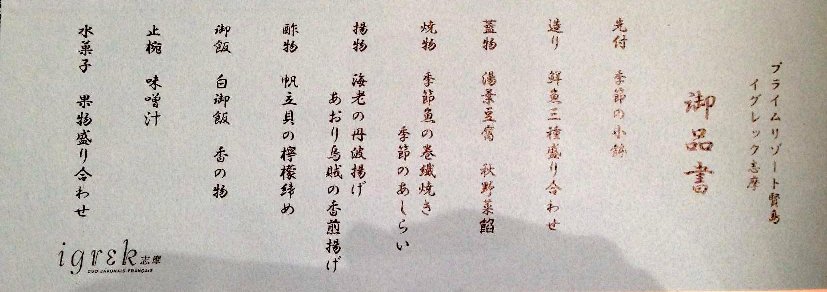 プライムリゾート賢島
イグレック志摩
御品書
先付 季節の小鉢
造り 鮮魚三種盛り合わせ
蓋物 湯葉豆腐 秋野菜餡
焼物 季節魚の巻繊焼き
季節のあしらい
揚物 海老の丹波揚げ
あおり烏賊の香煎揚げ
酢物 帆立貝の檸檬締め
御飯 白御飯 香の物
止椀 味噌汁
水菓子 果物盛り合わせ
igrek 志摩
DUO JAPONAIS FRANÇAIS